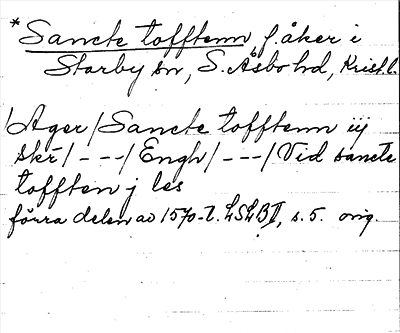 *Sancte tofftenn f. åker i
Starby sn, S. Åsbo hd, Krist. l.
/Ager/Sancte tofftenn iij
skr̄/---/Engh/---/Vid sancte
tofften j les
förra delen av 1570-t. LSLB II, s. 5. orig.